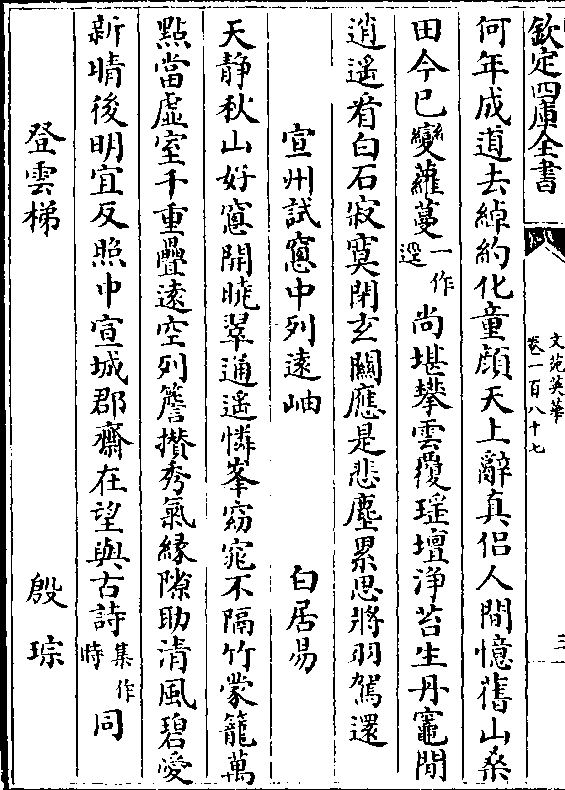 欽定四庫全書
文苑英華
卷一百八十七
三
何年成道去綽約化童顔天上辭真侣人間憶舊山桑
田今已變蘿蔓一作逕尚堪攀雲覆瑶壇浄苔生丹竈間
逍遥看白石寂寞閉玄闗應是悲塵累思將羽駕還
宣州試窻中列遠岫 白居易
天静秋山好窻開曉翠通遥憐峯窈窕不隔竹蒙籠萬
點當虚室千重疊遠空列簷攅秀氣緣隙助清風碧愛
新晴後明宜反照中宣城郡齋在望與古詩集作時同
登雲梯 殷琮